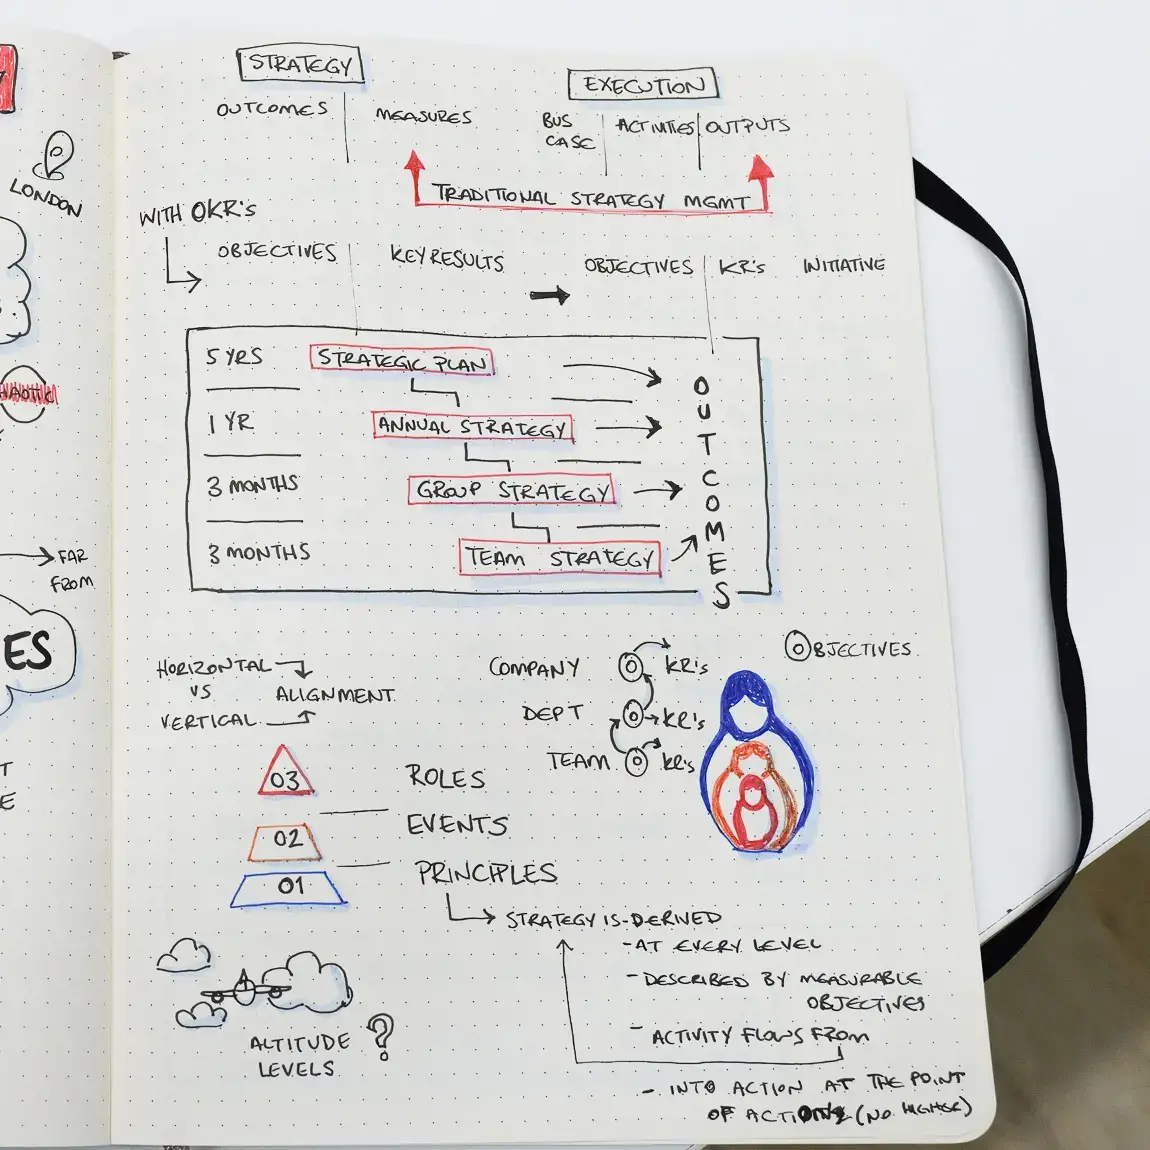 LONDON
FAR
FROM
ES
T
E
STRATEGY
EXECUTION
OUTCOMES
MEASURES
BUS
CASE
ACTIVITIES
OUTPUTS
TRADITIONAL STRATEGY MGMT
WITH OKR's
OBJECTIVES
KEY RESULTS
OBJECTIVES
KR's
INITIATIVE
5 YRS
STRATEGIC PLAN
1 YR
ANNUAL STRATEGY
3 MONTHS
GROUP STRATEGY
3 MONTHS
TEAM STRATEGY
OUTCOMES
HORIZONTAL
VS
VERTICAL
ALIGNMENT
COMPANY
O
KR's
DEPT
O
KR's
TEAM
O
KR's
OBJECTIVES
03
ROLES
02
EVENTS
01
PRINCIPLES
STRATEGY IS-DERIVED
-AT EVERY LEVEL
-DESCRIBED BY MEASURABLE
OBJECTIVES
- ACTIVITY FLOWS FROM
- INTO ACTION AT THE POINT
OF ACTION (NO HIGHER)
ALTITUDE ?
LEVELS